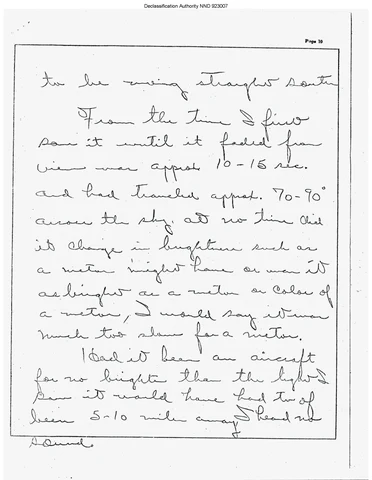 Declassification Authority NND 923007
Page 10
to be moving straight south
From the time I first
saw it until it faded from
view was approx 10-15 sec.
and had traveled approx. 70-90°
across the sky. at no time did
it change in brightness such as
a meteor might have or was it
as bright as a meteor or color of
a meteor, I would say it was
much too slow for a meteor.
Had it been an aircraft
for no brighter than the light I
saw it would have had to of
been 5-10 miles away I heard no
sound.